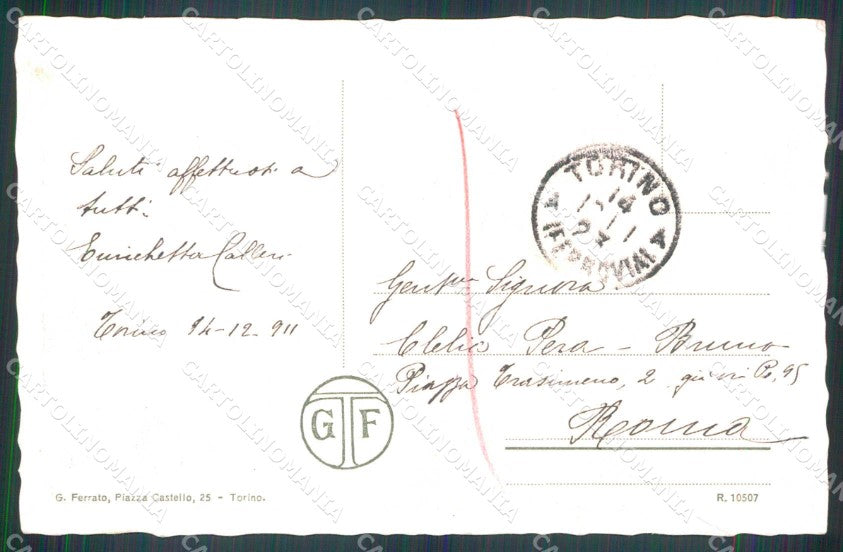 Saluti affettuosi a
tutti.
Enrichetta
Torino 14-12-911
TORINO
14
FERROVIA
Gent.ma Signora
Clelia Pera - Bruno
Piazza Trasimeno, 2 già via Po, 95
Roma
GTF
G. Ferrato, Piazza Castello, 25 - Torino.
R. 10507
CARTOLINOMANIA